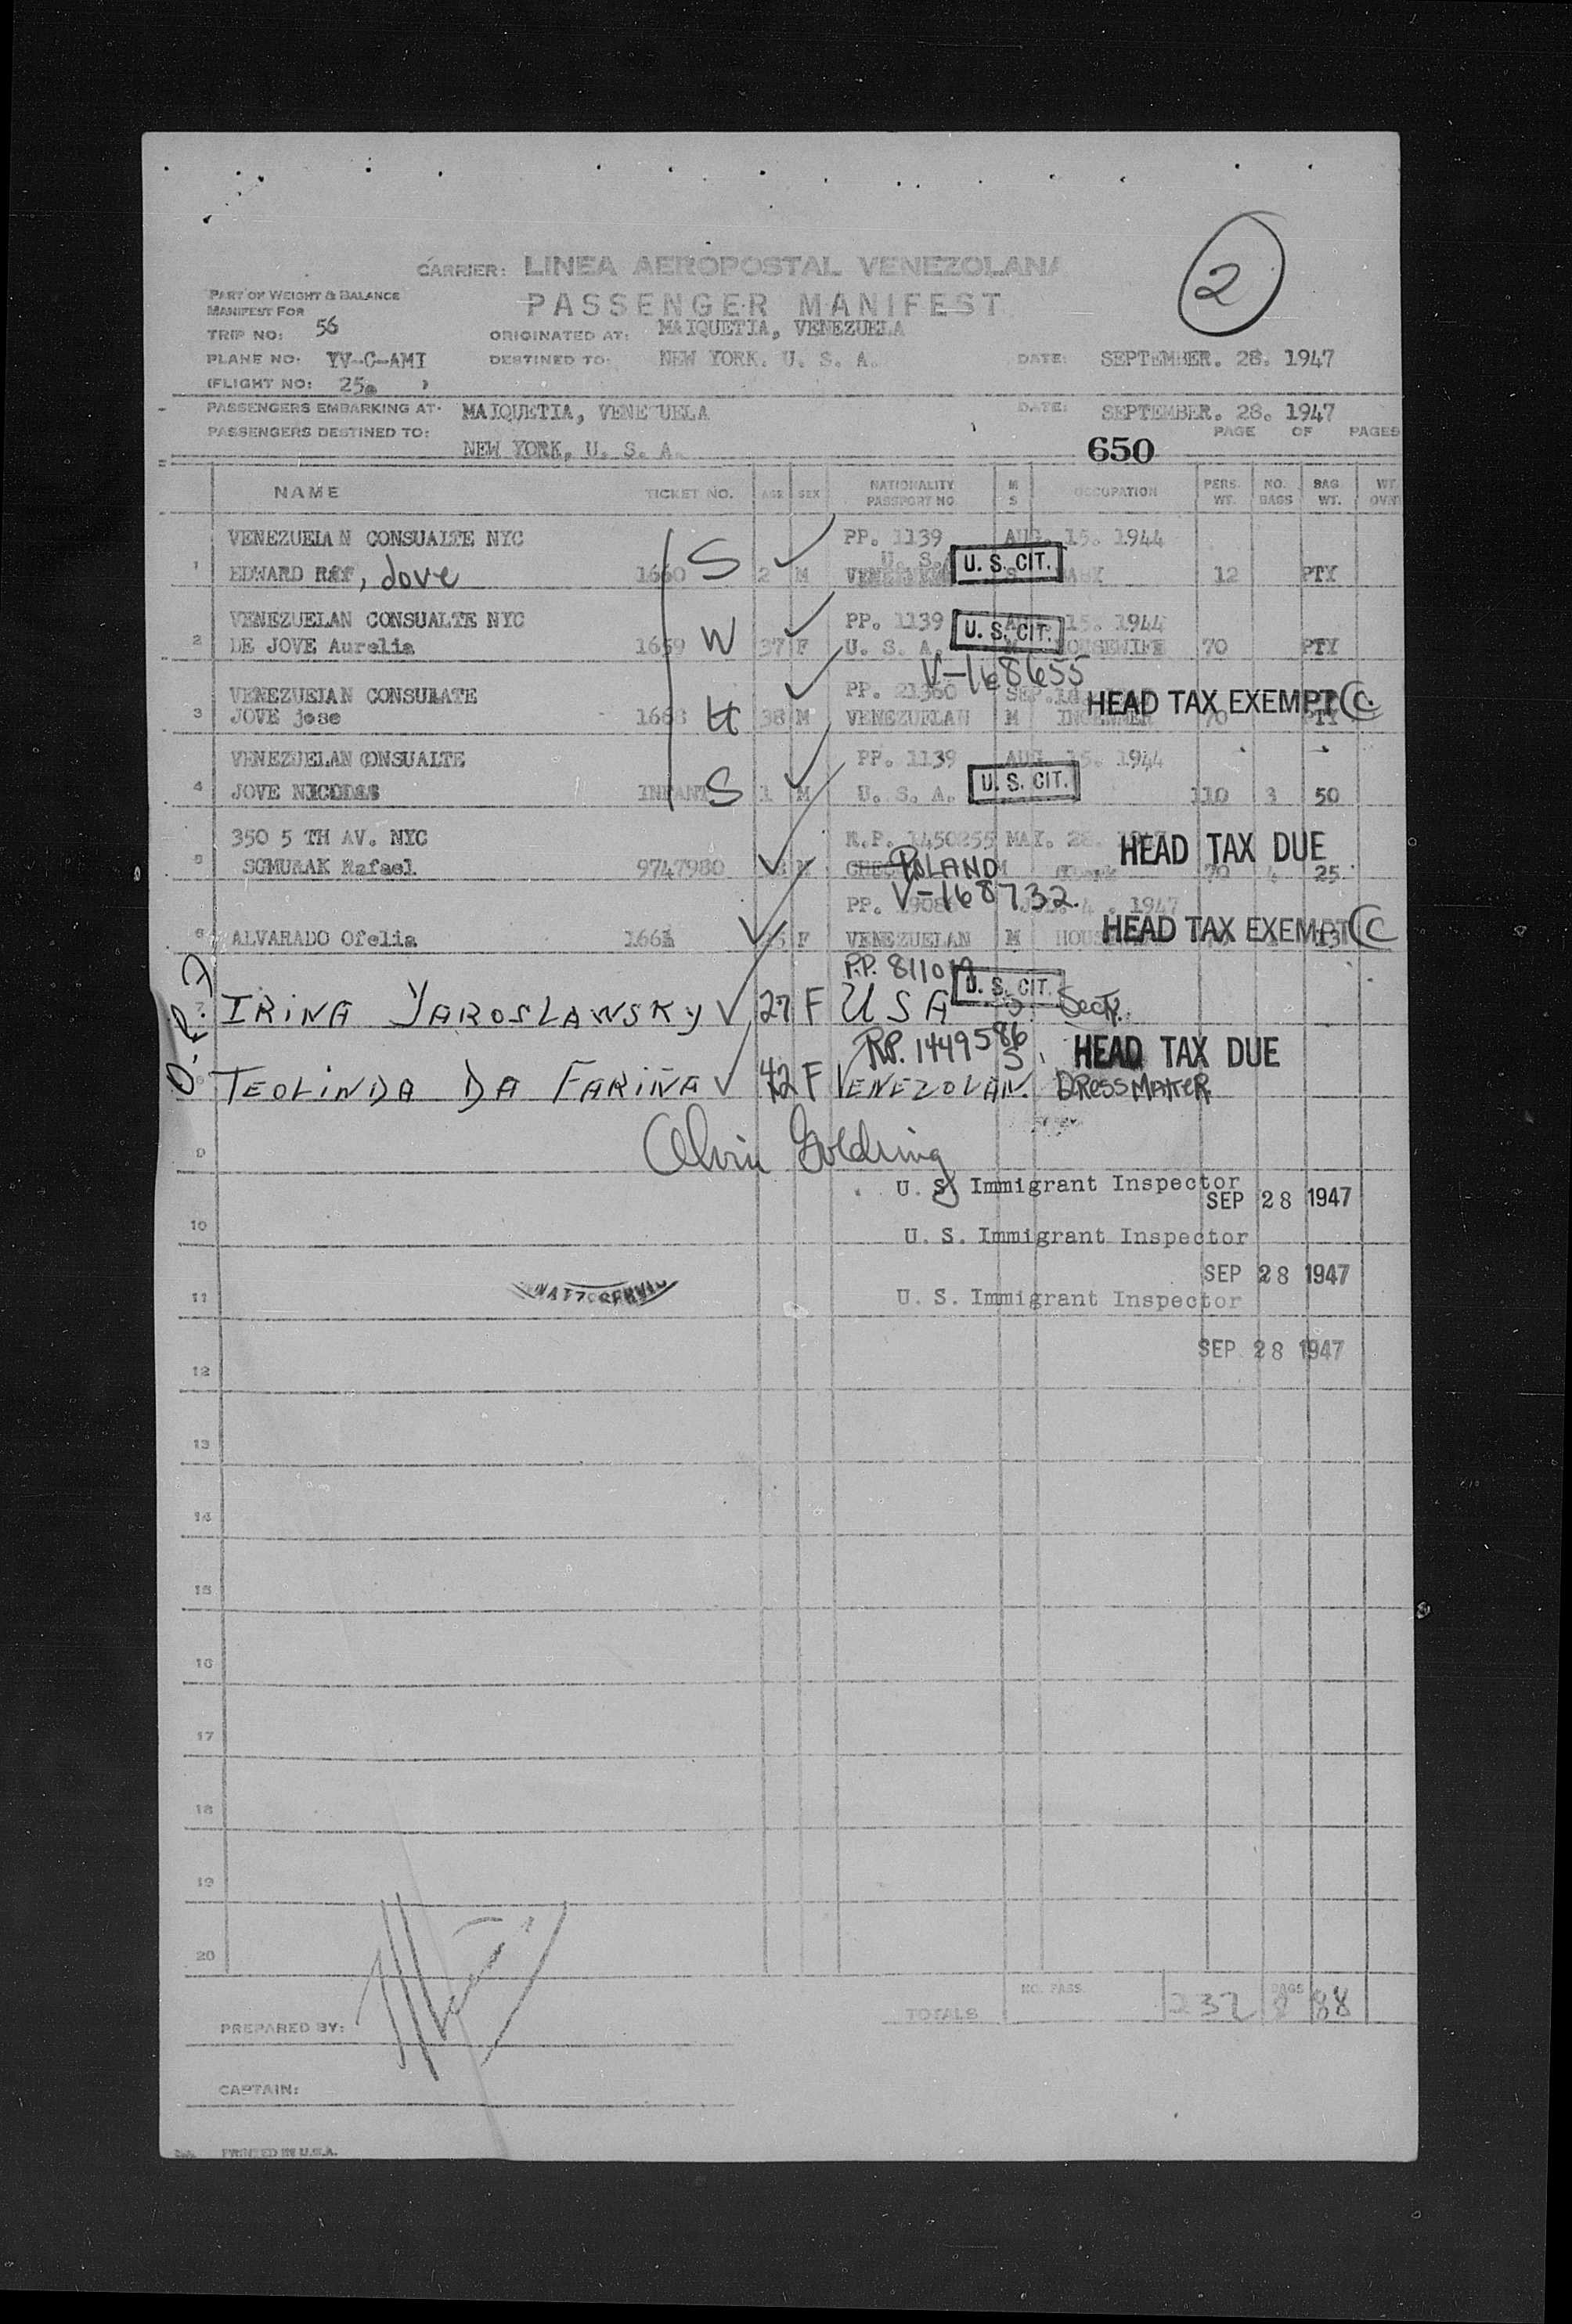 2
CARRIER: LINEA AEROPOSTAL VENEZOLANA
PASSENGER MANIFEST
PART OF WEIGHT & BALANCE
MANIFEST FOR
TRIP NO: 56 ORIGINATED AT: MAIQUETIA, VENEZUELA
PLANE NO. YV-C-AMI DESTINED TO: NEW YORK. U. S. A. DATE: SEPTEMBER. 28. 1947
(FLIGHT NO: 25 )
PASSENGERS EMBARKING AT: MAIQUETIA, VENEZUELA DATE: SEPTEMBER. 28. 1947
PASSENGERS DESTINED TO: NEW YORK, U. S. A. PAGE OF PAGES
650
NAME TICKET NO. AGE SEX NATIONALITY PASSPORT NO M S OCCUPATION PERS. WT. NO. BAGS BAG WT. WT. OVWT
VENEZUELAN CONSUALTE NYC PP. 1139 AUG. 15. 1944
1 EDWARD RAY, Jove 1660 S 2 M U. S. U. S. CIT. S BABY 12 PTY
VENEZUELAN CONSUALTE NYC PP. 1139 15. 1944
2 DE JOVE Aurelia 1659 W 37 F U. S. A. U. S. CIT. M HOUSEWIFE 70 PTY
V-168655
VENEZUELAN CONSULATE PP. 21360 SEP. HEAD TAX EXEMPT C.
3 JOVE jose 1668 H 38 M VENEZUELAN M 70 PTY
VENEZUELAN CONSUALTE PP. 1139 AUG. 15. 1944
4 JOVE INFANT S 1 M U. S. A. U. S. CIT. 110 3 50
350 5 TH AV. NYC R.P. 1450255 MAY. 28. HEAD TAX DUE
5 Rafael 9747980 M POLAND 70 4 25
V-168732.
PP. 1947
6 ALVARADO Ofelia 166 F VENEZUELAN M HEAD TAX EXEMPT C
P.P. U. S. CIT.
7 IRINA YAROSLAWSKY 27 F USA S. Secty.
RP. 1449586 HEAD TAX DUE
8 TEOLINDA DA FARIÑA 42 F VENEZOLAN. S DRESSMAKER
Alvin Goldring
9
U. S. Immigrant Inspector
SEP 28 1947
10 U. S. Immigrant Inspector
SEP 28 1947
11 U. S. Immigrant Inspector
SEP 28 1947
12
13
14
15
16
17
18
19
20
TOTALS NO. PASS. 232 BAGS 8 88
PREPARED BY:
CAPTAIN:
PRINTED IN U.S.A.